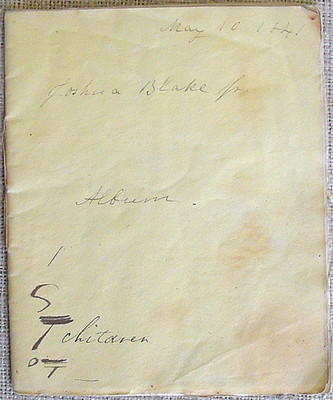 May 10 1841
Joshua Blake Jr
Album.
1
S
T children